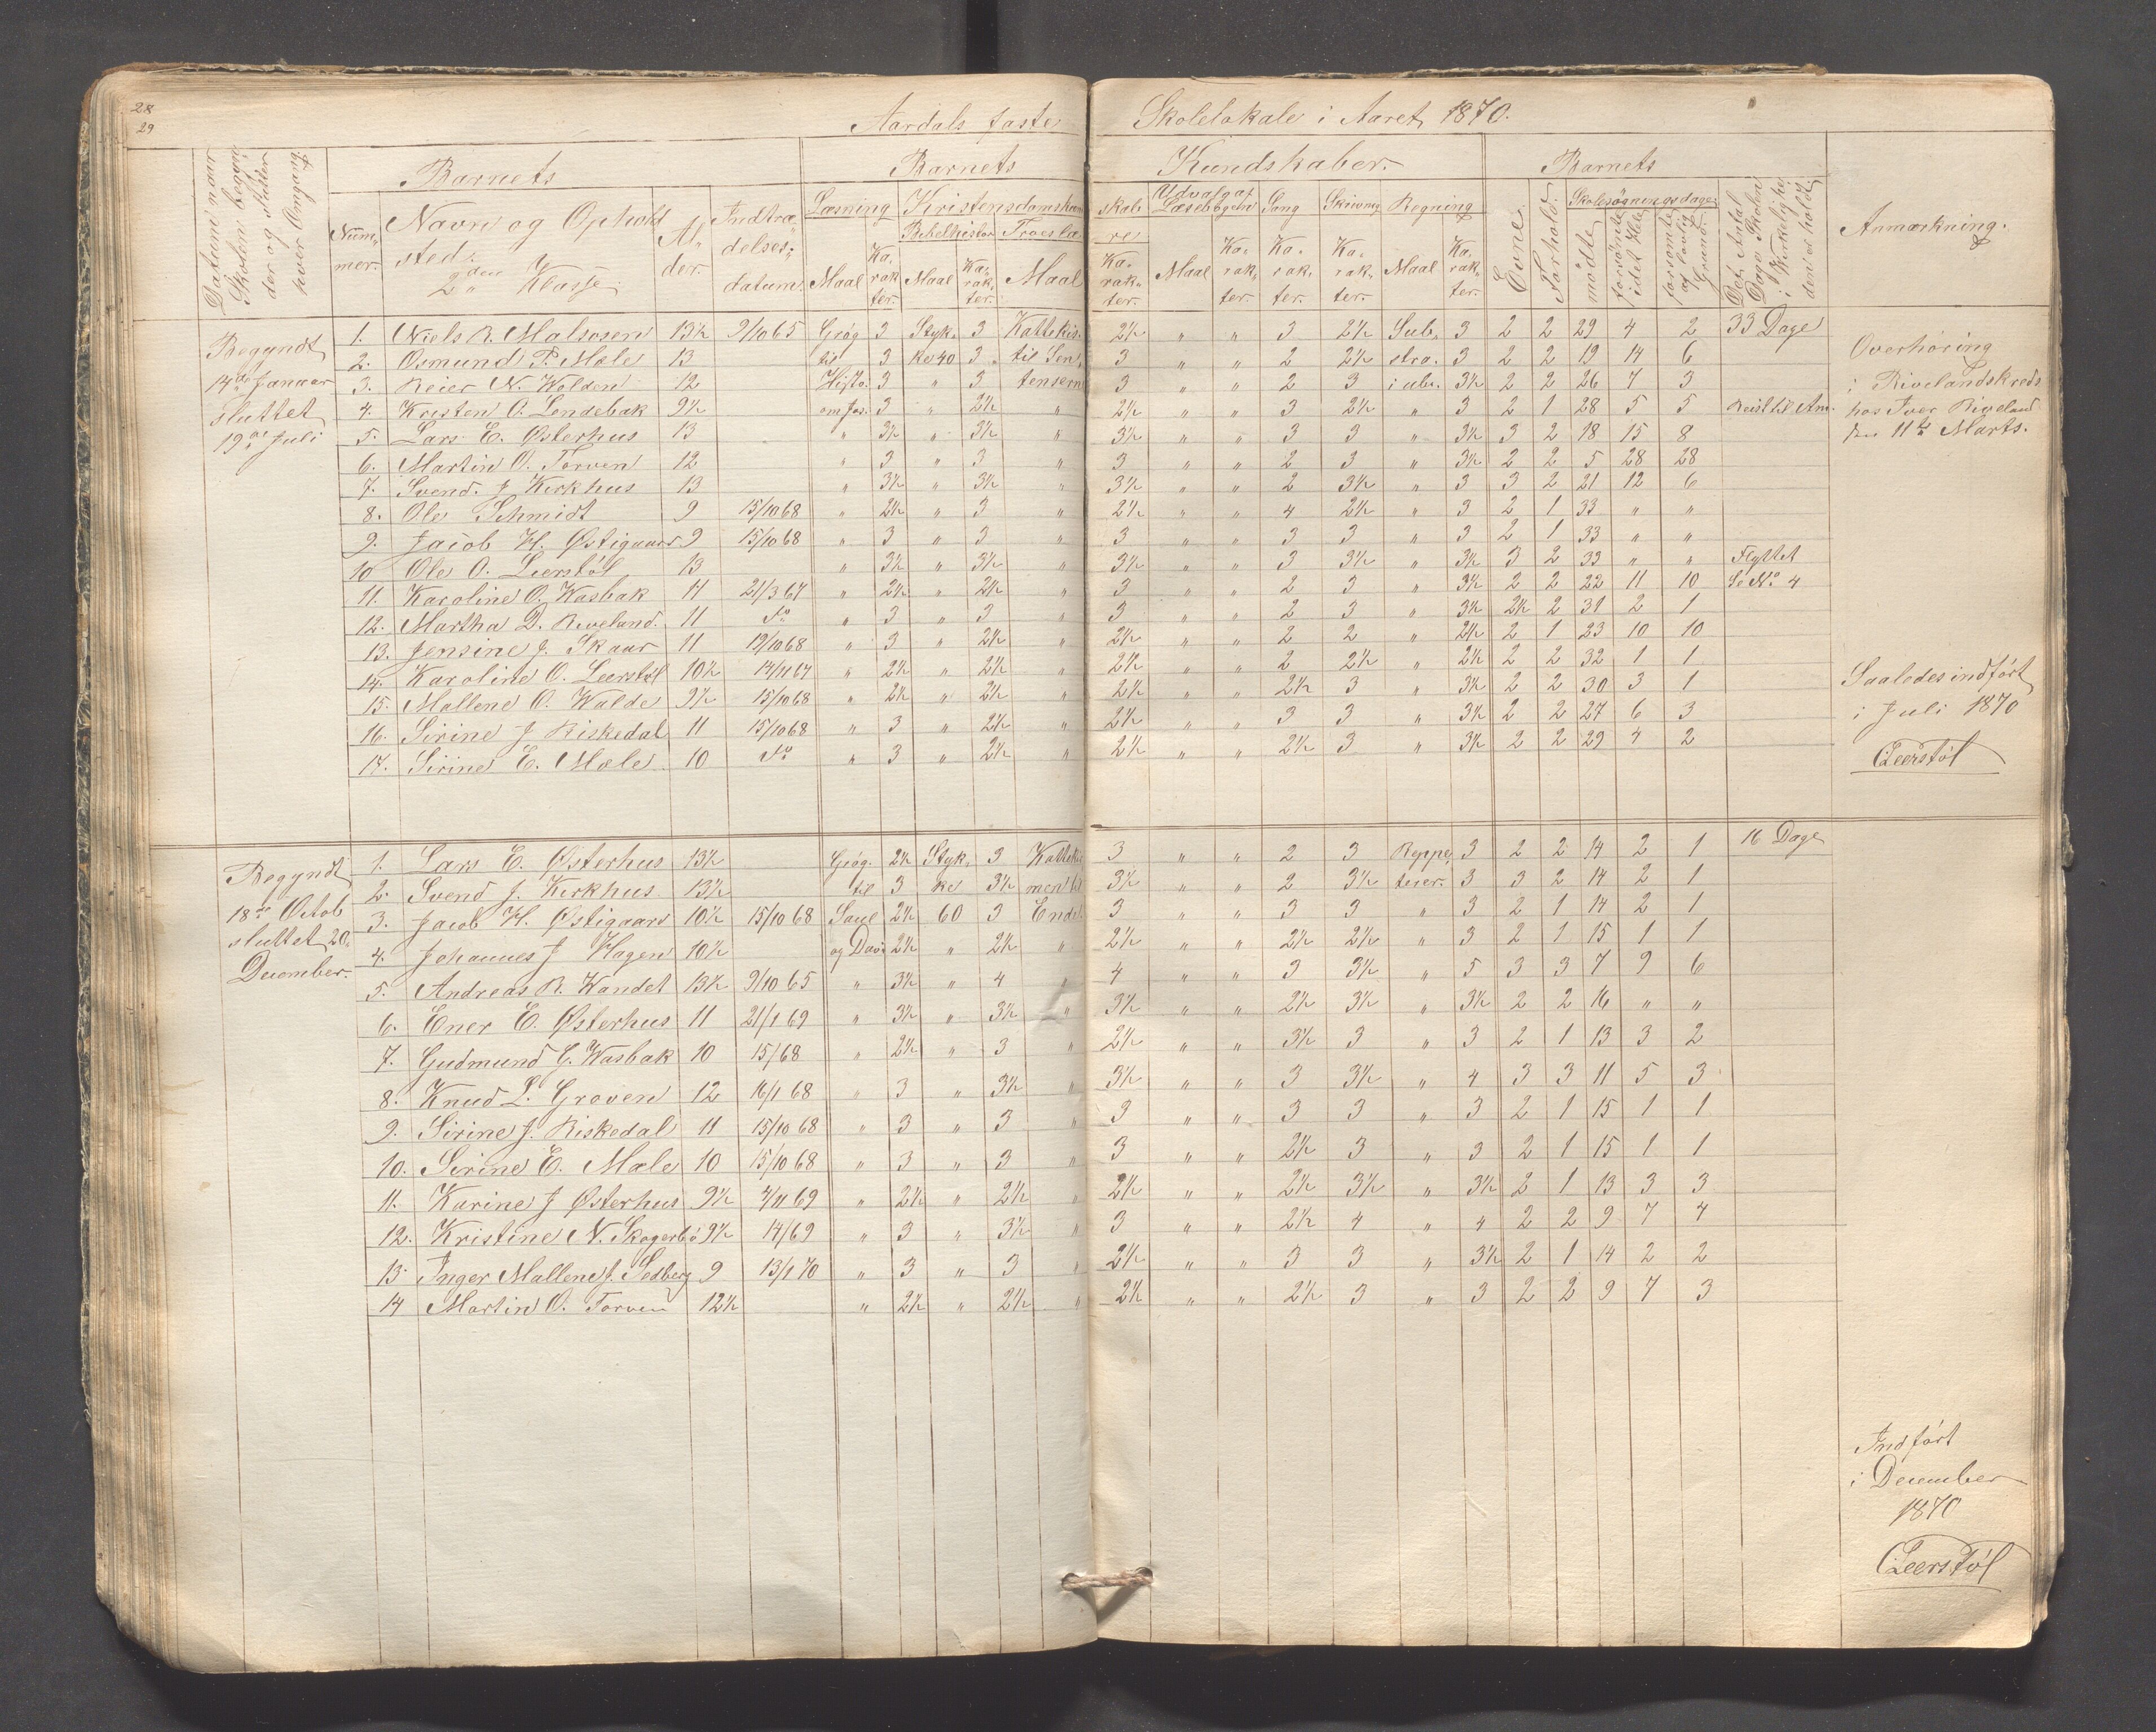 28
29
Aardals faste Skolelokale i Aaret 1870.
Datum naar Skolen begynder og slutter hver Omgang.
Barnets
Barnets Kundskaber.
Barnets
Anmærkning.
Nummer.
Navn og Opholdsted. 2den Klasse.
Alder.
Indtrædelsesdatum.
Læsning
Kristendomskundskab
Bibelhistor
Troeslære
Udvalg af Læsebogen
Sang
Skrivning
Regning
Evne.
Forhold.
Skolesøgningsdage
mødte
forsømte i det Hele
forsømte af lovlig Grund
Det Antal Dage Skolen i Virkelighe den er holdt.
Maal Karakter. Maal Karakter. Maal Karakter. Maal Karakter. Karakter. Karakter. Maal Karakter.
Begyndt 14de Januar sluttet 19de Juli
1. Niels R. Malsosen 13½ 9/10 65 Geog 3 Styk. 3 Kattekis. 2½ " " 3 2½ Sub. 3 2 2 29 4 2 33 Dage
2. Osmund P. Mæle 13 til 3 ke 40 3 til Sen 3 " " 2 2½ stra. 3 2 2 19 14 6
3. Reier N. Wolden 12 Histo. 3 " 3 tensern 3 " " 2 3 i ube. 3½ 2 2 26 7 3
4. Kresten O. Lendebak 9½ om Jos. 3 " 2½ " 2½ " " 3 2½ " 3 2 1 28 5 5 Reist til Am.
5. Lars E. Østerhus 13 " 3½ " 3½ " 3½ " " 3 3 " 3½ 3 2 18 15 8
6. Martin O. Torven 12 " 3 " 3 " 3 " " 2 3 " 3½ 2 2 5 28 28
7. Svend. J Kirkhus 13 " 3½ " 3½ " 3½ " " 2 3½ " 3 3 2 21 12 6
8. Ole Schmidt 9 15/10 68 " 2½ " 3 " 2½ " " 4 2½ " 3 2 1 33 " "
9. Jacob H. Østigaar 9 15/10 68 " 3 " 3 " 3 " " 3 3 " 3 2 1 33 " "
10 Ole O. Leerstøl 13 " 3½ " 3½ " 3½ " " 3 3½ " 3½ 3 2 33 " " Flyttet
11. Karoline O. Wasbak 14 21/3 67 " 2½ " 2½ " 3 " " 2 3 " 3½ 2 2 22 11 10 Se No 4
12. Martha D. Riveland. 11 do " 3 " 3 " 3 " " 2 3 " 3½ 2½ 2 31 2 1
13. Jensine J. Skaar 11 19/10 68 " 3 " 2½ " 2½ " " 2 2 " 2½ 2 1 23 10 10
14. Karoline O. Leerstøl 10½ 14/11 67 " 2½ " 2½ " 2½ " " 2 2½ " 2½ 2 2 32 1 1
15. Mallene O. Walde 9½ 15/10 68 " 2½ " 2½ " 2½ " " 2½ 3 " 3½ 2 2 30 3 1
16. Sirine J Riskedal 11 15/10 68 " 3 " 2½ " 2½ " " 3 3 " 3½ 2 2 27 6 3
17. Sirine E. Mæle 10 do " 3 " 2½ " 2½ " " 2½ 3 " 3½ 2 2 29 4 2
Overhøring
i Rivelandskreds
hos Iver Riveland
den 11te Marts.
Saaledes indført
i Juli 1870
Leerstøl
Begyndt 18de Octob sluttet 20. December.
1. Lars E. Østerhus 13½ Geog. 2½ Styk. 3 Kattekis 3 " " 2 3 Reppe 3 2 2 14 2 1 16 Dage
2. Svend J. Kirkhus 13½ til 3 ke 3½ men til 3½ " " 2 3½ terer. 3 3 2 14 2 1
3. Jacob H. Østigaard 10½ 15/10 68 Saul 2½ 60 3 Endel. 3 " " 3 3 " 3 2 1 14 2 1
4. Johannes J Hagen 10½ og Dav. 2½ " 2½ " 2½ " " 2½ 2½ " 3 2 1 15 1 1
5. Andreas R. Kandet 13½ 9/10 65 " 3½ " 4 " 4 " " 3 3½ " 5 3 3 7 9 6
6. Ener E. Østerhus 11 21/1 69 " 3½ " 3½ " 3½ " " 2½ 3½ " 3½ 2 2 16 " "
7. Gudmund G. Wasbak 10 15/68 " 2½ " 3 " 2½ " " 3½ 3 " 3 2 1 13 3 2
8. Knud L. Groven 12 16/1 68 " 3 " 3½ " 3½ " " 3 3½ " 4 3 3 11 5 3
9. Sirine J. Riskedal 11 15/10 68 " 3 " 3 " 3 " " 3 3 " 3 2 1 15 1 1
10. Sirine E. Mæle 10 15/10 68 " 3 " 3 " 3 " " 2½ 3 " 3 2 1 15 1 1
11. Karine J Østerhus 9½ 4/11 69 " 2½ " 2½ " 2½ " " 2½ 3½ " 3½ 2 1 13 3 3
12. Kristine N. Skogerbø 9½ 14/69 " 3 " 3½ " 3 " " 2½ 4 " 4 2 2 9 7 4
13. Inger Mallene J. Sedberg 9 13/1 70 " 3 " 3 " 2½ " " 3 3 " 3½ 2 1 14 2 2
14 Martin O. Torven 12½ " 2½ " 2½ " 2½ " " 2½ 3 " 3 2 2 9 7 3
Indført
i December
1870
Leerstøl